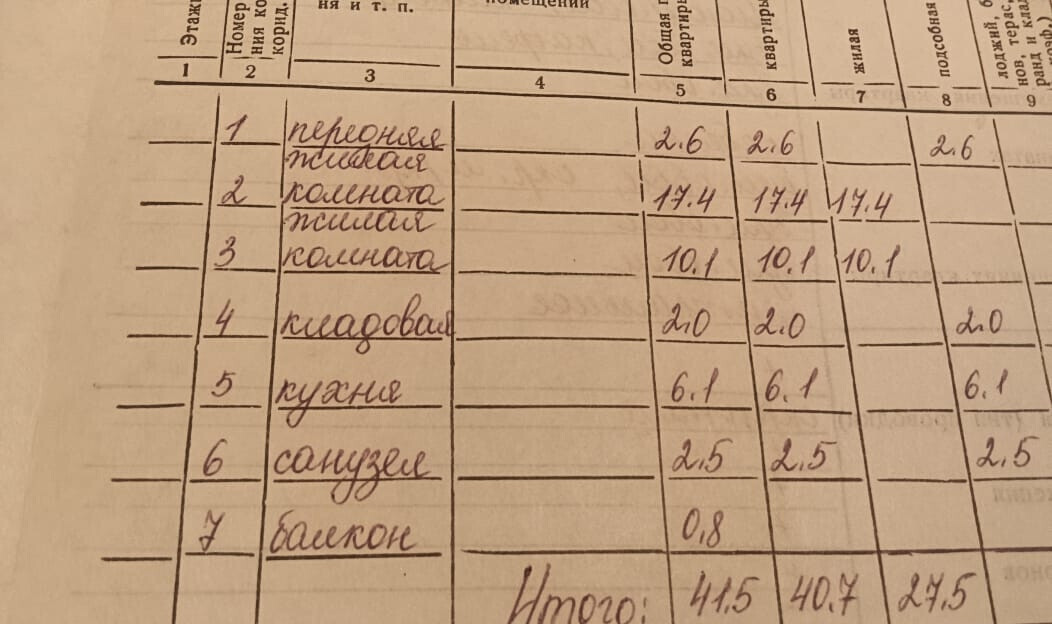 Этажи
Номер
ния ко
корид.
ня и т. п.
помещений
Общая п
квартиры
квартиры
жилая
подсобная
лоджий, б
нов, терас,
ранд и клад
коэф.)
1 2 3 4 5 6 7 8 9
1 передняя 2.6 2.6 2.6
жилая
2 комната 17.4 17.4 17.4
жилая
3 комната 10.1 10.1 10.1
4 кладовая 2.0 2.0 2.0
5 кухня 6.1 6.1 6.1
6 санузел 2.5 2.5 2.5
7 балкон 0.8
Итого: 41.5 40.7 27.5